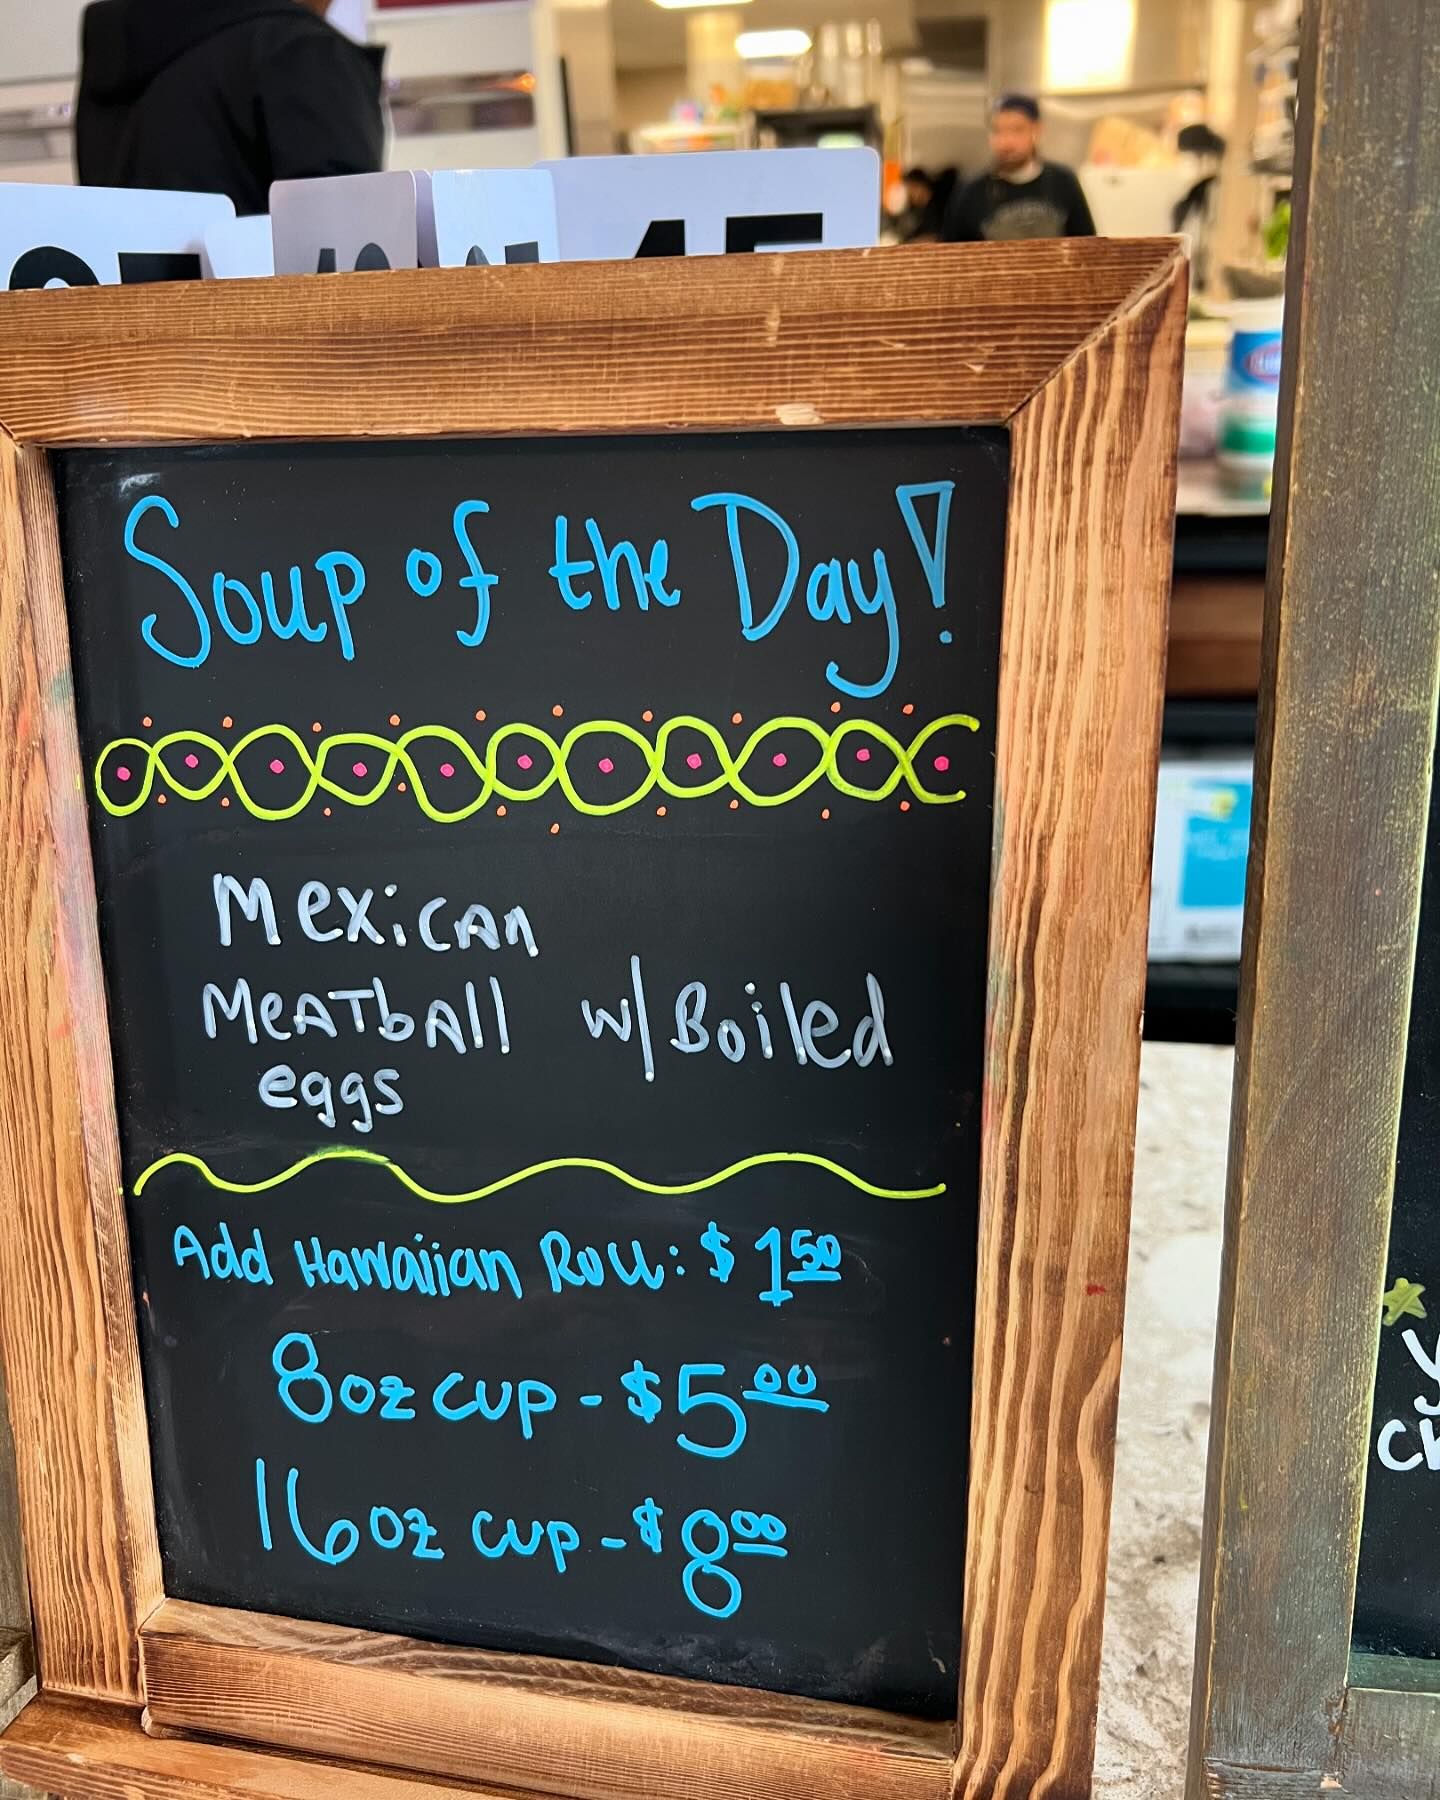 Soup of the Day!
Mexican
Meatball w/Boiled
eggs
Add Hawaiian Roll: $1.50
8oz cup - $5.00
16oz cup - $8.00